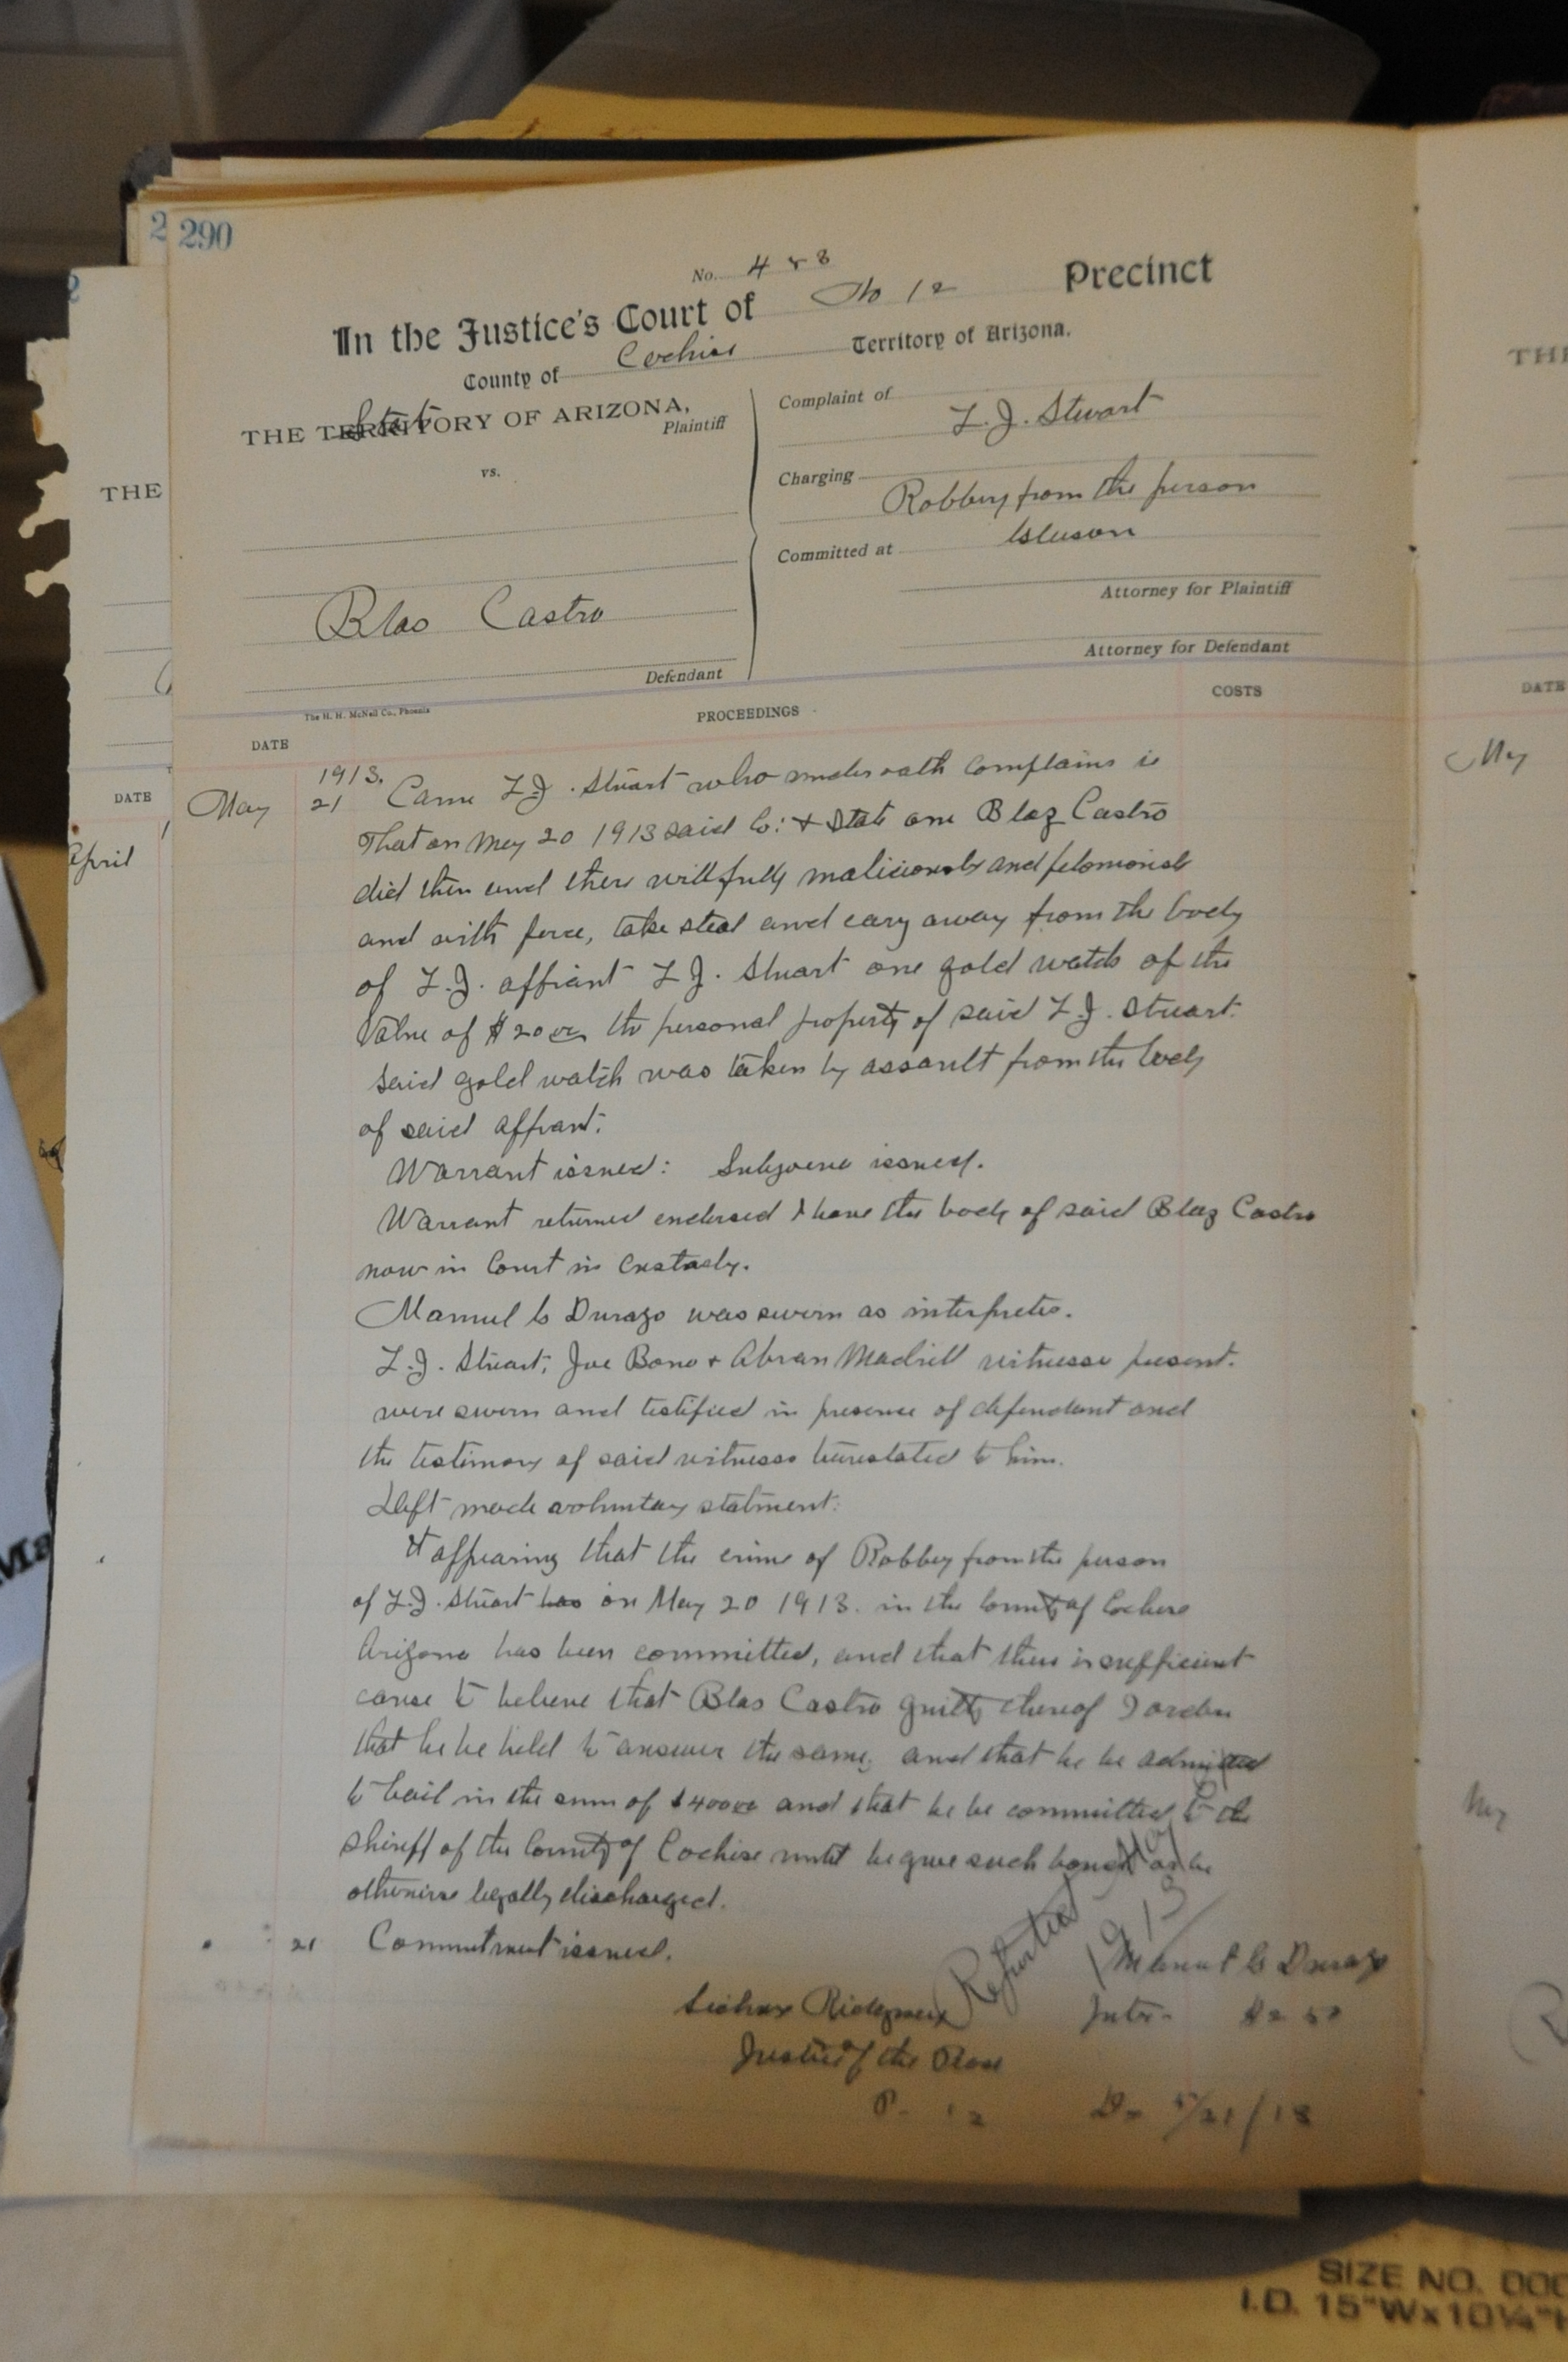 290
2
No. 458
In the Justice's Court of No 12 Precinct
County of Cochise Territory of Arizona.
State
THE TERRITORY OF ARIZONA,
Plaintiff
vs.
Blas Castro
Defendant
Complaint of
L.J. Stuart
Charging
Robbery from the person
Committed at
Attorney for Plaintiff
Attorney for Defendant
The H. H. McNeil Co., Phoenix
DATE
PROCEEDINGS
COSTS
1913.
May 21 Came L.J. Stuart who under oath complains
That on May 20 1913 said Co: & State one Blaz Castro
did then and there willfully maliciously and feloniously
and with force, take steal and cary away from the body
of L.J. affiant L.J. Stuart one gold watch of the
Value of $20 00 the personal property of said L.J. Stuart.
Said gold watch was taken by assault from the body
of said affiant.
Warrant issued: Subpoena issued.
Warrant returned endorsed I have the body of said Blaz Castro
now in Court in Custody.
Manuel C Durazo was sworn as interpreter.
L.J. Stuart, Joe Bono & Abran Madrill witnesses present.
were sworn and testified in presence of defendant and
the testimony of said witnesses translated to him.
Deft made voluntary statment.
It appearing that the crime of Robbery from the person
of L.J. Stuart has on May 20 1913. in the County of Cochise
Arizona has been committed, and that there is sufficient
cause to believe that Blas Castro guilty thereof I order
that he be held to answer the same, and that he be admitted
to bail in the sum of $400 00 and that he be committed to the
Sheriff of the County of Cochise until he give such bond or be
otherwise legally discharged.
21 Commitment issued.
Reported
1913
Manuel C Durazo
Intr. $2 50
Justice of the Peace
P. 12
5/21/13
THE
DATE
April
THE
DATE
May
SIZE NO. 000
I.D. 15"W x 10¼"H